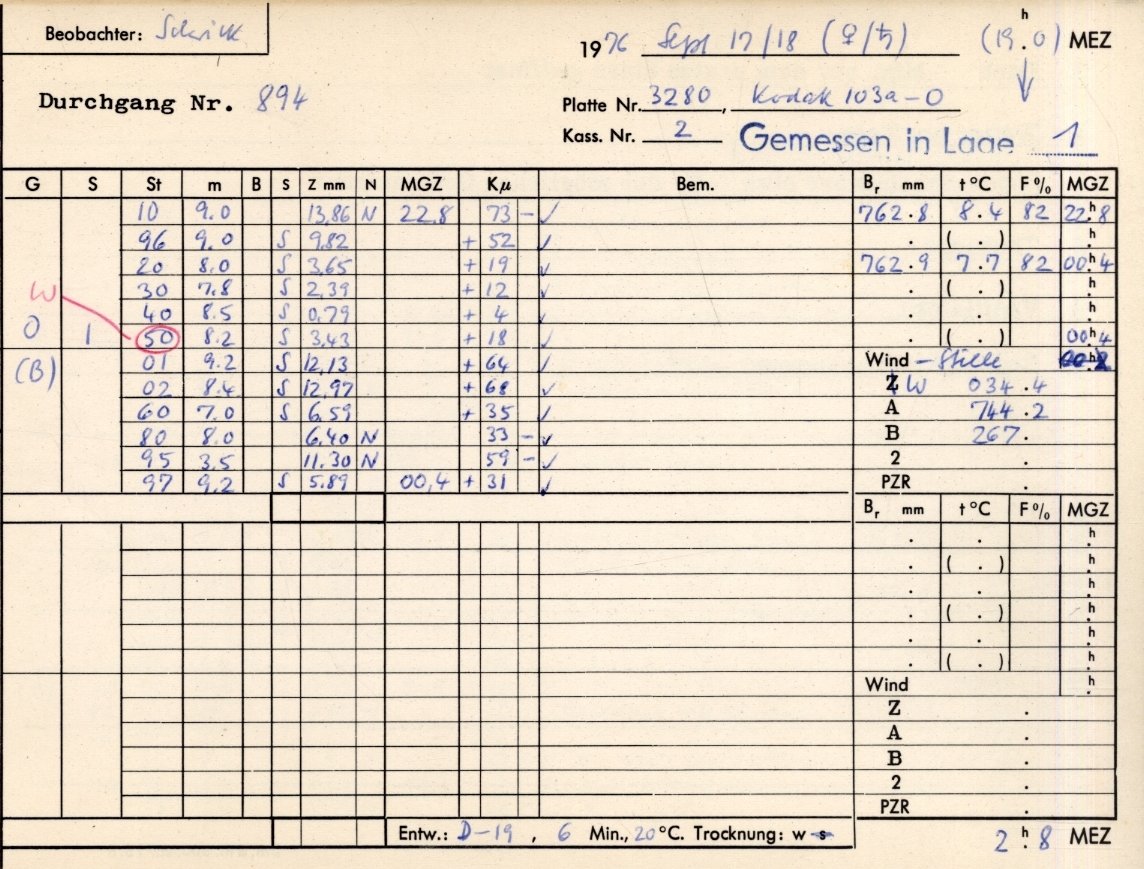 Beobachter:
1976 Sept 17/18 (♀/♄) (19.h0) MEZ
Durchgang Nr. 894
Platte Nr. 3280, Kodak 103a-O
Kass. Nr. 2 Gemessen in Lage 1
G S St m B S Z mm N MGZ Kμ Bem. Br mm t°C F% MGZ
10 9.0 13,86 N 22.8 73 - ✓ 762.8 8.4 82 22.h8
96 9.0 S 9,82 + 52 ✓ . ( . ) .h
20 8.0 S 3,65 + 19 ✓ 762.9 7.7 82 00.h4
W 30 7.8 S 2,39 + 12 ✓ . ( . ) .h
40 8.5 S 0,79 + 4 ✓ . . .h
0 1 50 8.2 S 3,43 + 18 ✓ . ( . ) 00.h4
(B) 01 9.2 S 12,13 + 64 ✓ Wind - Stille
02 8.4 S 12,97 + 68 ✓ Z W 034.4
60 7.0 S 6,59 + 35 ✓ A 744.2
80 8.0 6,40 N 33 - ✓ B 267.
95 3.5 11.30 N 59 - ✓ 2 .
97 9.2 S 5.89 00,4 + 31 ✓ PZR .
Br mm t°C F% MGZ
. . .h
. ( . ) .h
. . .h
. ( . ) .h
. . .h
. ( . ) .h
Wind .h
Z .
A .
B .
2 .
PZR .
Entw.: D-19, 6 Min., 20°C. Trocknung: w s
2.h8 MEZ